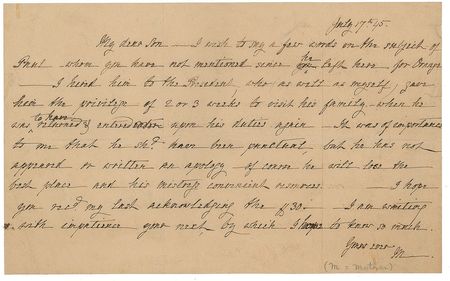 July 17th 45.
My dear Son — I wish to say a few words on the subject of
Paul — whom you have not mentioned since he left here for Orange
— I hired him to the President, who as well as myself, gave
him the privilege of 2 or 3 weeks to visit his family — when he
was to have returned & entered upon his duties again — It was of importance
to me that he shd. have been punctual, but he has not
appeared or written an apology of course he will lose the
best place and his mistress convenient resources — I hope
you recd. my last acknowledging the $30. — I am waiting
with impatience your next, by which I hope to know so much.
Yours ever
M
(M = mother)